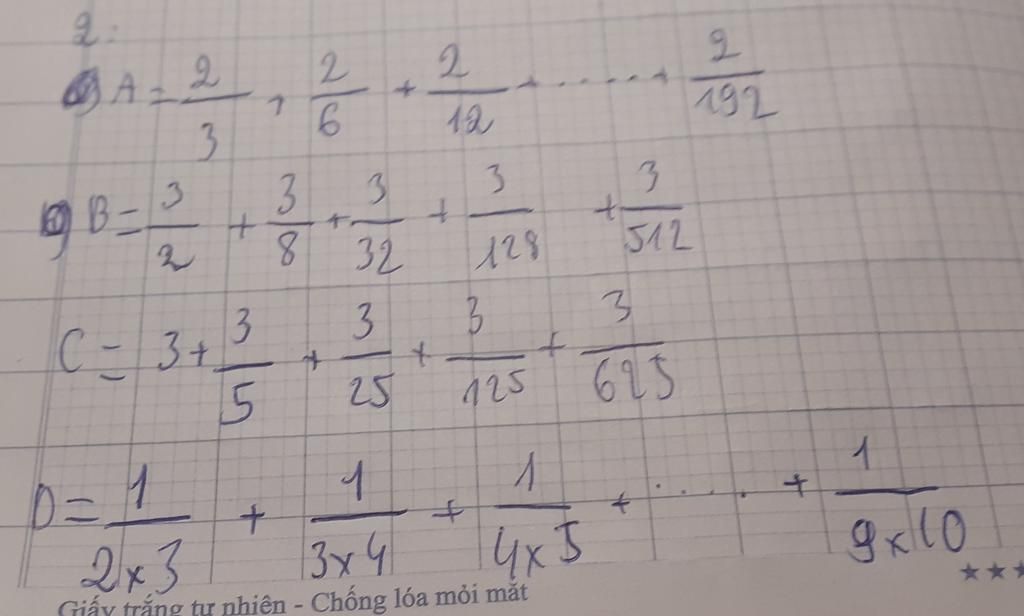 2:
a) A = 2/3 + 2/6 + 2/12 + ..... + 2/192
b) B = 3/2 + 3/8 + 3/32 + 3/128 + 3/512
C = 3 + 3/5 + 3/25 + 3/125 + 3/625
D = 1/2x3 + 1/3x4 + 1/4x5 + ..... + 1/9x10
Giấy trắng tự nhiên - Chống lóa mỏi mắt